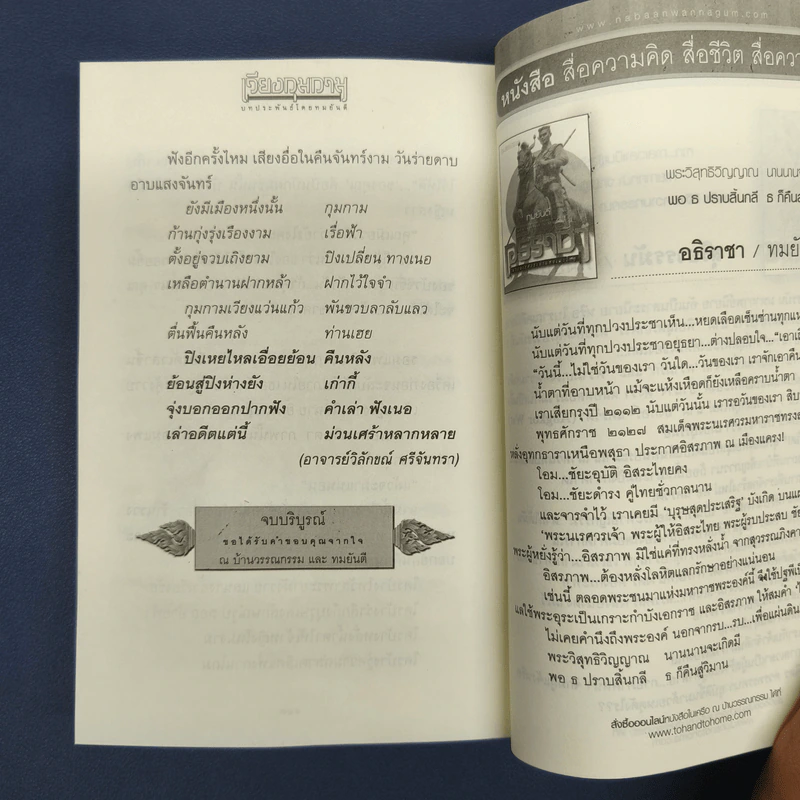 เวียงกุมกาม
บทประพันธ์โดยทมยันตี
ฟังอีกครั้งไหม เสียงอื่อในคืนจันทร์งาม วันร่ายดาบ
อาบแสงจันทร์
ยังมีเมืองหนึ่งนั้น กุมกาม
ก้านกุ่งรุ่งเรืองงาม เรื่อฟ้า
ตั้งอยู่จวบเถิงยาม ปิงเปลี่ยน ทางเนอ
เหลือตำนานฝากหล้า ฝากไว้ใจจำ
กุมกามเวียงแว่นแก้ว พันขวบลาลับแลว
ตื่นฟื้นคืนหลัง ท่านเฮย
ปิงเหยไหลเอื่อยย้อน คืนหลัง
ย้อนสู่ปิงห่างยัง เก่ากี้
จุ่งบอกออกปากฟัง คำเล่า ฟังเนอ
เล่าอดีตแต่นี้ ม่วนเศร้าหลากหลาย
(อาจารย์วิลักขณ์ ศรีจันทรา)
จบบริบูรณ์
ขอได้รับคำขอบคุณจากใจ
ณ บ้านวรรณกรรม และ ทมยันตี
www.nabaanwannagum.com
หนังสือ สื่อความคิด สื่อชีวิต สื่อความ
พระวิสุทธิวิญญาณ นานนาน
พอ ธ ปราบสิ้นกลี ธ ก็คืน
ทมยันตี
อธิราชา
อธิราชา / ทมยัน
นับแต่วันที่ทุกปวงประชาเห็น...หยดเลือดเซ็นซ่านทุกแห
นับแต่วันที่ทุกปวงประชาอยุธยา...ต่างปลอบใจ...“เอาเถิ
“วันนี้...ไม่ใช่วันของเรา วันใด...วันของเรา เราจักเอาคืน
น้ำตาที่อาบหน้า แม้จะแห้งเหือดก็ยังเหลือคราบน้ำตา
เราเสียกรุงปี ๒๑๑๒ นับแต่วันนั้น เรารอวันของเรา สิบ
พุทธศักราช ๒๑๒๗ สมเด็จพระนเรศวรมหาราชทรง
หลั่งอุทกธาราเหนือพสุธา ประกาศอิสรภาพ ณ เมืองแครง!
โอม...ชัยะอุบัติ อิสระไทยคง
โอม...ชัยะดำรง คู่ไทยชั่วกาลนาน
และจารจำไว้ เราเคยมี ‘บุรุษสุดประเสริฐ’ บังเกิด บนแผ่
‘พระนเรศวรเจ้า พระผู้ให้อิสระไทย พระผู้รบประสบ ชัย
พระผู้หยั่งรู้ว่า...อิสรภาพ มิใช่แค่ที่ทรงหลั่งน้ำ จากสุวรรณภิงคา
อิสรภาพ...ต้องหลั่งโลหิตแลกรักษาอย่างแน่นอน
เช่นนี้ ตลอดพระชนมาแห่งมหาราชพระองค์นี้ จึงใช้ปฐพีเป็
แลใช้พระอุระเป็นเกราะกำบังเอกราช และอิสรภาพ ให้สมคำ
ไม่เคยคำนึงถึงพระองค์ นอกจากรบ...รบ...เพื่อแผ่นดิน
พระวิสุทธิวิญญาณ นานนานจะเกิดมี
พอ ธ ปราบสิ้นกลี ธ ก็คืนสู่วิมาน
สั่งซื้อออนไลน์หนังสือในเครือ ณ บ้านวรรณกรรม ได้ที่
www.tohandtohome.com